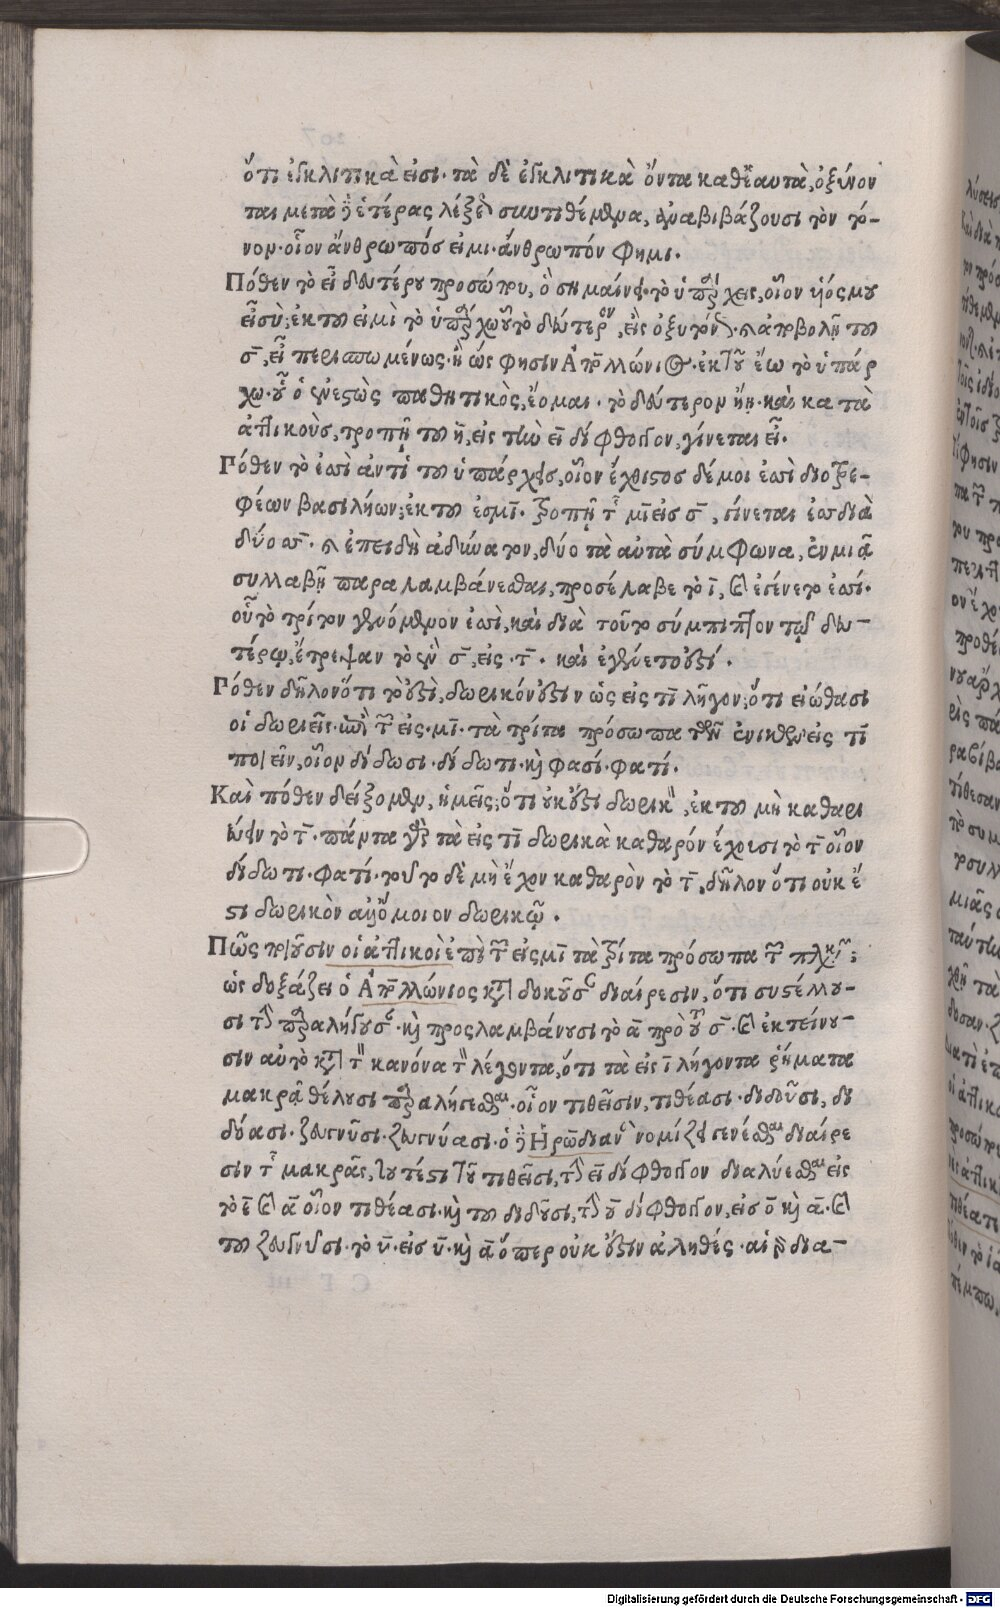 ὅτι ἐγκλιτικὰ εἰσι· τὰ δὲ ἐγκλιτικὰ ὄντα καθ' ἑαυτὰ, ὀξύνον
ται μετὰ δὲ ἑτέρας λέξεως συντιθέμενα, ἀναβιβάζουσι τὸν τό-
νον· οἷον ἄνθρωπός εἰμι· ἄνθρωπόν φημι.
Πόθεν τὸ εἶ δευτέρου προσώπου, ὃ σημαίνει τὸ ὑπάρχεις, οἷον υἱός μου
εἶ σύ; ἐκ τοῦ εἰμὶ τὸ ὑπάρχω οὗ τὸ δεύτερον, εἲς ὀξυτόνως· καὶ ἀποβολῇ τοῦ
σ̅, εἶ περισπωμένως· ἢ ὥς φησιν Ἀπολλώνιος· ἐκ τοῦ ἔω τὸ ὑπάρ
χω· οὗ ὁ ἐνεστὼς παθητικὸς, ἔομαι· τὸ δεύτερον ἔη· καὶ κατὰ
ἀττικοὺς, τροπῇ τοῦ η, εἰς τὴν ει δίφθογγον, γίνεται εἶ.
Πόθεν τὸ ἐσσὶ ἀντὶ τοῦ ὑπάρχεις, οἷον ἔχθιστος δέ μοι ἐσσὶ διοτρε-
φέων βασιλήων; ἐκ τοῦ ἐσμί· τροπῇ τοῦ μ̅ εἰς σ̅, γίνεται ἐσ διὰ
δύο σ̅· καὶ ἐπειδὴ ἀδύνατον, δύο τὰ αὐτὰ σύμφωνα, ἐν μιᾷ
συλλαβῇ παραλαμβάνεσθαι, προσέλαβε τὸ ι̅, καὶ ἐγίνετο ἐσσί·
οὗ τὸ τρίτον γενόμενον ἐσσὶ, καὶ διὰ τοῦτο σύμπιπτον τῷ δευ-
τέρῳ, ἔτρεψαν τὸ ἓν σ̅, εἰς· τ̅· καὶ ἐγένετο ἐστί.
Πόθεν δῆλον ὅτι τὸ ἐστὶ, δωρικόν ἐστιν ὡς εἰς τι̅ λῆγον; ὅτι εἰώθασι
οἱ δωριεῖς· ἀπὸ τῶν εἰς· μι̅· τὰ τρίτα πρόσωπα τῶν ἑνικῶν εἰς τι̅
ποιεῖν, οἷον δίδωσι· δίδωτι· καὶ φασί· φατί.
Καὶ πόθεν δείξομεν, ἡμεῖς; ὅτι οὐκ ἔστι δωρικὸν, ἐκ τοῦ μὴ καθαρι
εύειν τὸ τ̅· πάντα γὰρ τὰ εἰς τι̅ δωρικὰ καθαρόν ἔχουσι τὸ τ̅ οἷον
δίδωτι· φατί· τοῦτο δὲ μὴ ἔχον καθαρὸν τὸ τ̅, δῆλον ὅτι οὐκ ἔ
στι δωρικὸν ὅμοιον δωρικῷ.
Πῶς ποιοῦσιν οἱ ἀττικοὶ ἀπὸ τῶν εἰς μι̅ τὰ τρίτα πρόσωπα τῶν πληθυντικῶν;
ὡς δοξάζει ὁ Ἀπολλώνιος κατὰ δοκοῦσαν διαίρεσιν, ὅτι συστέλλου-
σι τὴν παραλήγουσαν· καὶ προσλαμβάνουσι τὸ α̅ πρὸ τοῦ σ̅· καὶ ἐκτείνου-
σιν αὐτὸ κατὰ τὸν κανόνα τὸν λέγοντα, ὅτι τὰ εἰς ι̅ λήγοντα ῥήματα
μακρᾷ θέλουσι παραλήγεσθαι· οἷον τιθεῖσιν, τιθέασι· διδοῦσι, δι
δόασι· ζευγνῦσι· ζευγνύασι· ὁ δὲ Ἡρωδιανὸς νομίζει γενέσθαι διαίρε
σιν τῆς μακρᾶς, τουτέστι τοῦ τιθεῖσι, τὴν ει̅ δίφθογγον διαλύεσθαι εἰς
τὸ ε̅ καὶ α̅ οἷον τιθέασι· καὶ τοῦ διδοῦσι, τὴν ου̅ δίφθογγον, εἰς ο̅ καὶ α̅· καὶ
τοῦ ζευγνῦσι· τὸ υ̅· εἰς υ̅· καὶ α̅ ὅπερ οὐκ ἔστιν ἀληθές· αἱ γὰρ δια-
Digitalisierung gefördert durch die Deutsche Forschungsgemeinschaft - DFG